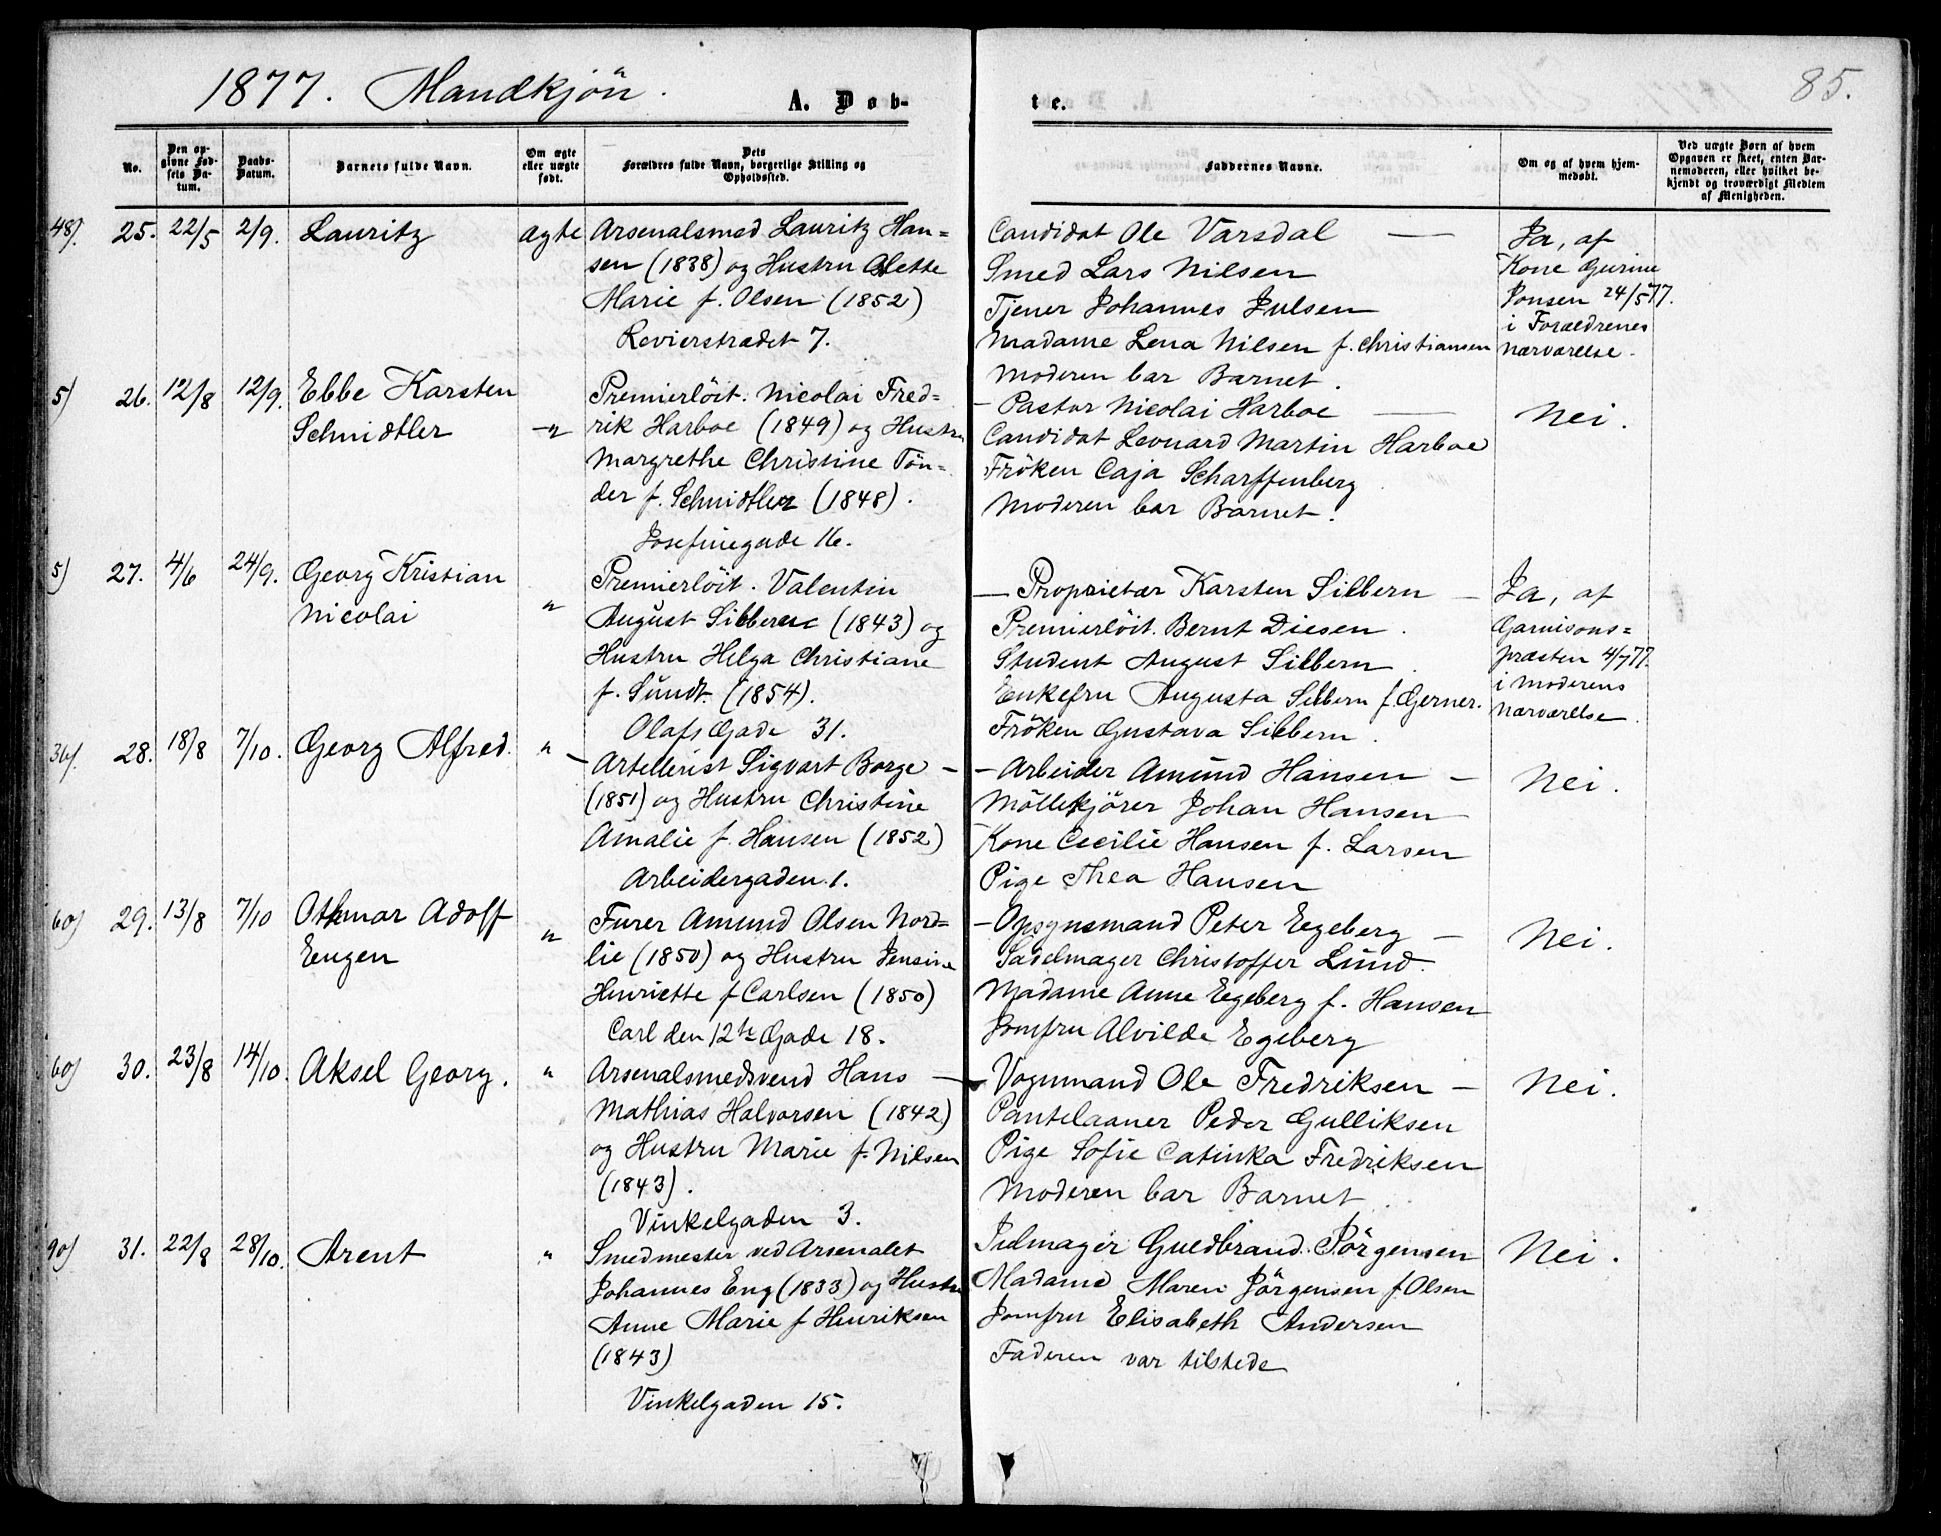 1877. Mandkjön.
A. Døb-
No.
Den op-
givne Fød-
sels Da-
tum.
Daabs-
Datum.
Barnets fulde Navn.
Om ægte
eller uægte
født.
Dets
Forældres fulde Navn, borgerlige Stilling og
Opholdssted.
48). 25. 22/5 2/9. Lauritz ægte
Arsenalsmed Lauritz Han=
sen (1838) og Hustru Alette
Marie f. Olsen (1852)
Revierstrædet 7.
5) 26. 12/8 12/9. Ebbe Karsten
Schnidtler -"
Premierlöit. Nicolai Fred=
rik Harboe (1849) og Hustru
Margrethe Christine Tön=
der f. Schnidtler (1848).
Josefinegade 16.
5) 27. 4/6 24/9. Georg Kristian
Nicolai "
Premierlöit. Valentin
August Sibbern (1843) og
Hustru Helga Christiane
f. Sundt. (1854).
Olafs Gade 31.
36). 28. 18/8 7/10. Georg Alfred. "
Artellerist Sigvart Borge -
(1851) og Hustru Christine
Amalie f. Hansen (1852)
Arbeidergaden 1.
60) 29. 13/8 7/10 Othmar Adolf
Eugen "
Furer Amund Olsen Nord=
lie (1850) og Hustru Jensine
Henriette f Carlsen (1850)
Carl den 12te Gade 18.
60) 30. 23/8 14/10. Aksel Georg. "
Arsenalsmedsvend Hans —
Mathias Halvorsen (1842)
og Hustru Marie f. Nilsen
(1843).
Vinkelgaden 3.
90) 31. 22/8 28/10. Arent "
Smedmester ved Arsenalet
Johannes Eng (1833) og Hustru
Anne Marie f Henriksen
(1843)
Vinkelgaden 15.
85.
te.
Faddernes Navne.
Om og af hvem hjem-
medøbt.
Ved uægte Børn af hvem
Opgaven er skeet, enten Bar-
nemoderen, eller hvilket be-
kjendt og troværdigt Medlem
af Menigheden.
Candidat Ole Varsdal —
Smed Lars Nilsen
Tjener Johannes Julsen
Madame Lena Nilsen f. Christiansen
Moderen bar Barnet.
Ja, af
Kone Gurine
Jonsen 24/5 77.
i Forældrenes
nærværelse.
- Pastor Nicolai Harboe —
Candidat Leonard Martin Harboe
Fröken Caja Scharffenberg
Moderen bar Barnet.
Nei.
— Proprietær Karsten Sibbern —
Premierlöit. Bernt Diesen.
Student August Sibbern.
Enkefru Augusta Sibbern f. Gerner.
Fröken Gustava Sibbern.
Ja, af
Garnisons=
præsten 4/7 77.
i Moderens
nærværelse.
- Arbeider Amund Hansen —
Möllekjörer Johan Hansen
Kone Cecilie Hansen f. Larsen
Pige Thea Hansen
Nei.
- Opsynsmand Peter Egeberg —
Sadelmager Christoffer Lund.
Madame Anne Egeberg f. Hansen
Jomfru Alvilde Egeberg
Nei.
Vognmand Ole Fredriksen —
Pantelaaner Peder Gulliksen
Pige Sofie Catinka Fredriksen
Moderen bar Barnet.
Nei.
Julmager Guldbrand Jörgensen
Madame Maren Jörgensen f Olsen
Jomfru Elisabeth Andersen
Faderen var tilstede
Nei.